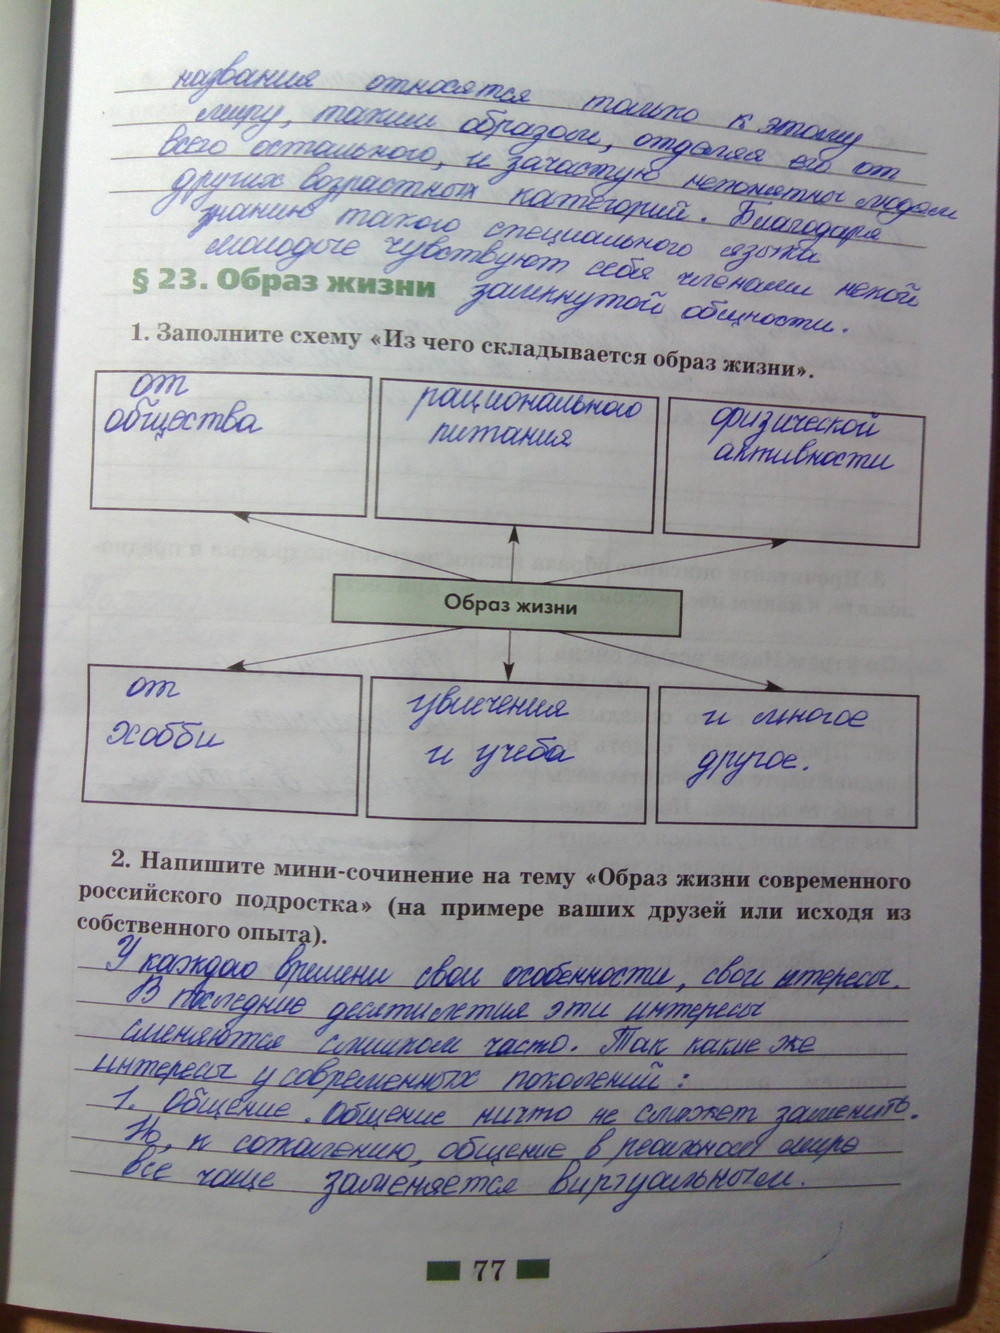 названия относятся только к этому
миру, таким образом, отделяя его от
всего остального, и зачастую непонятны людям
других возрастных категорий. Благодаря
знанию такого специального языка
молодые чувствуют себя членами некой
§ 23. Образ жизни замкнутой общности.
1. Заполните схему «Из чего складывается образ жизни».
от
общества
рационального
питания
физической
активности
Образ жизни
от
хобби
увлечения
и учеба
и многое
другое.
2. Напишите мини-сочинение на тему «Образ жизни современного
российского подростка» (на примере ваших друзей или исходя из
собственного опыта).
У каждого времени свои особенности, свои интересы.
В последние десятилетия эти интересы
сменяются слишком часто. Так какие же
интересы у современных поколений:
1. Общение. Общение ничто не сможет заменить.
Но, к сожалению, общение в реальном мире
все чаще заменяется виртуальным.
77